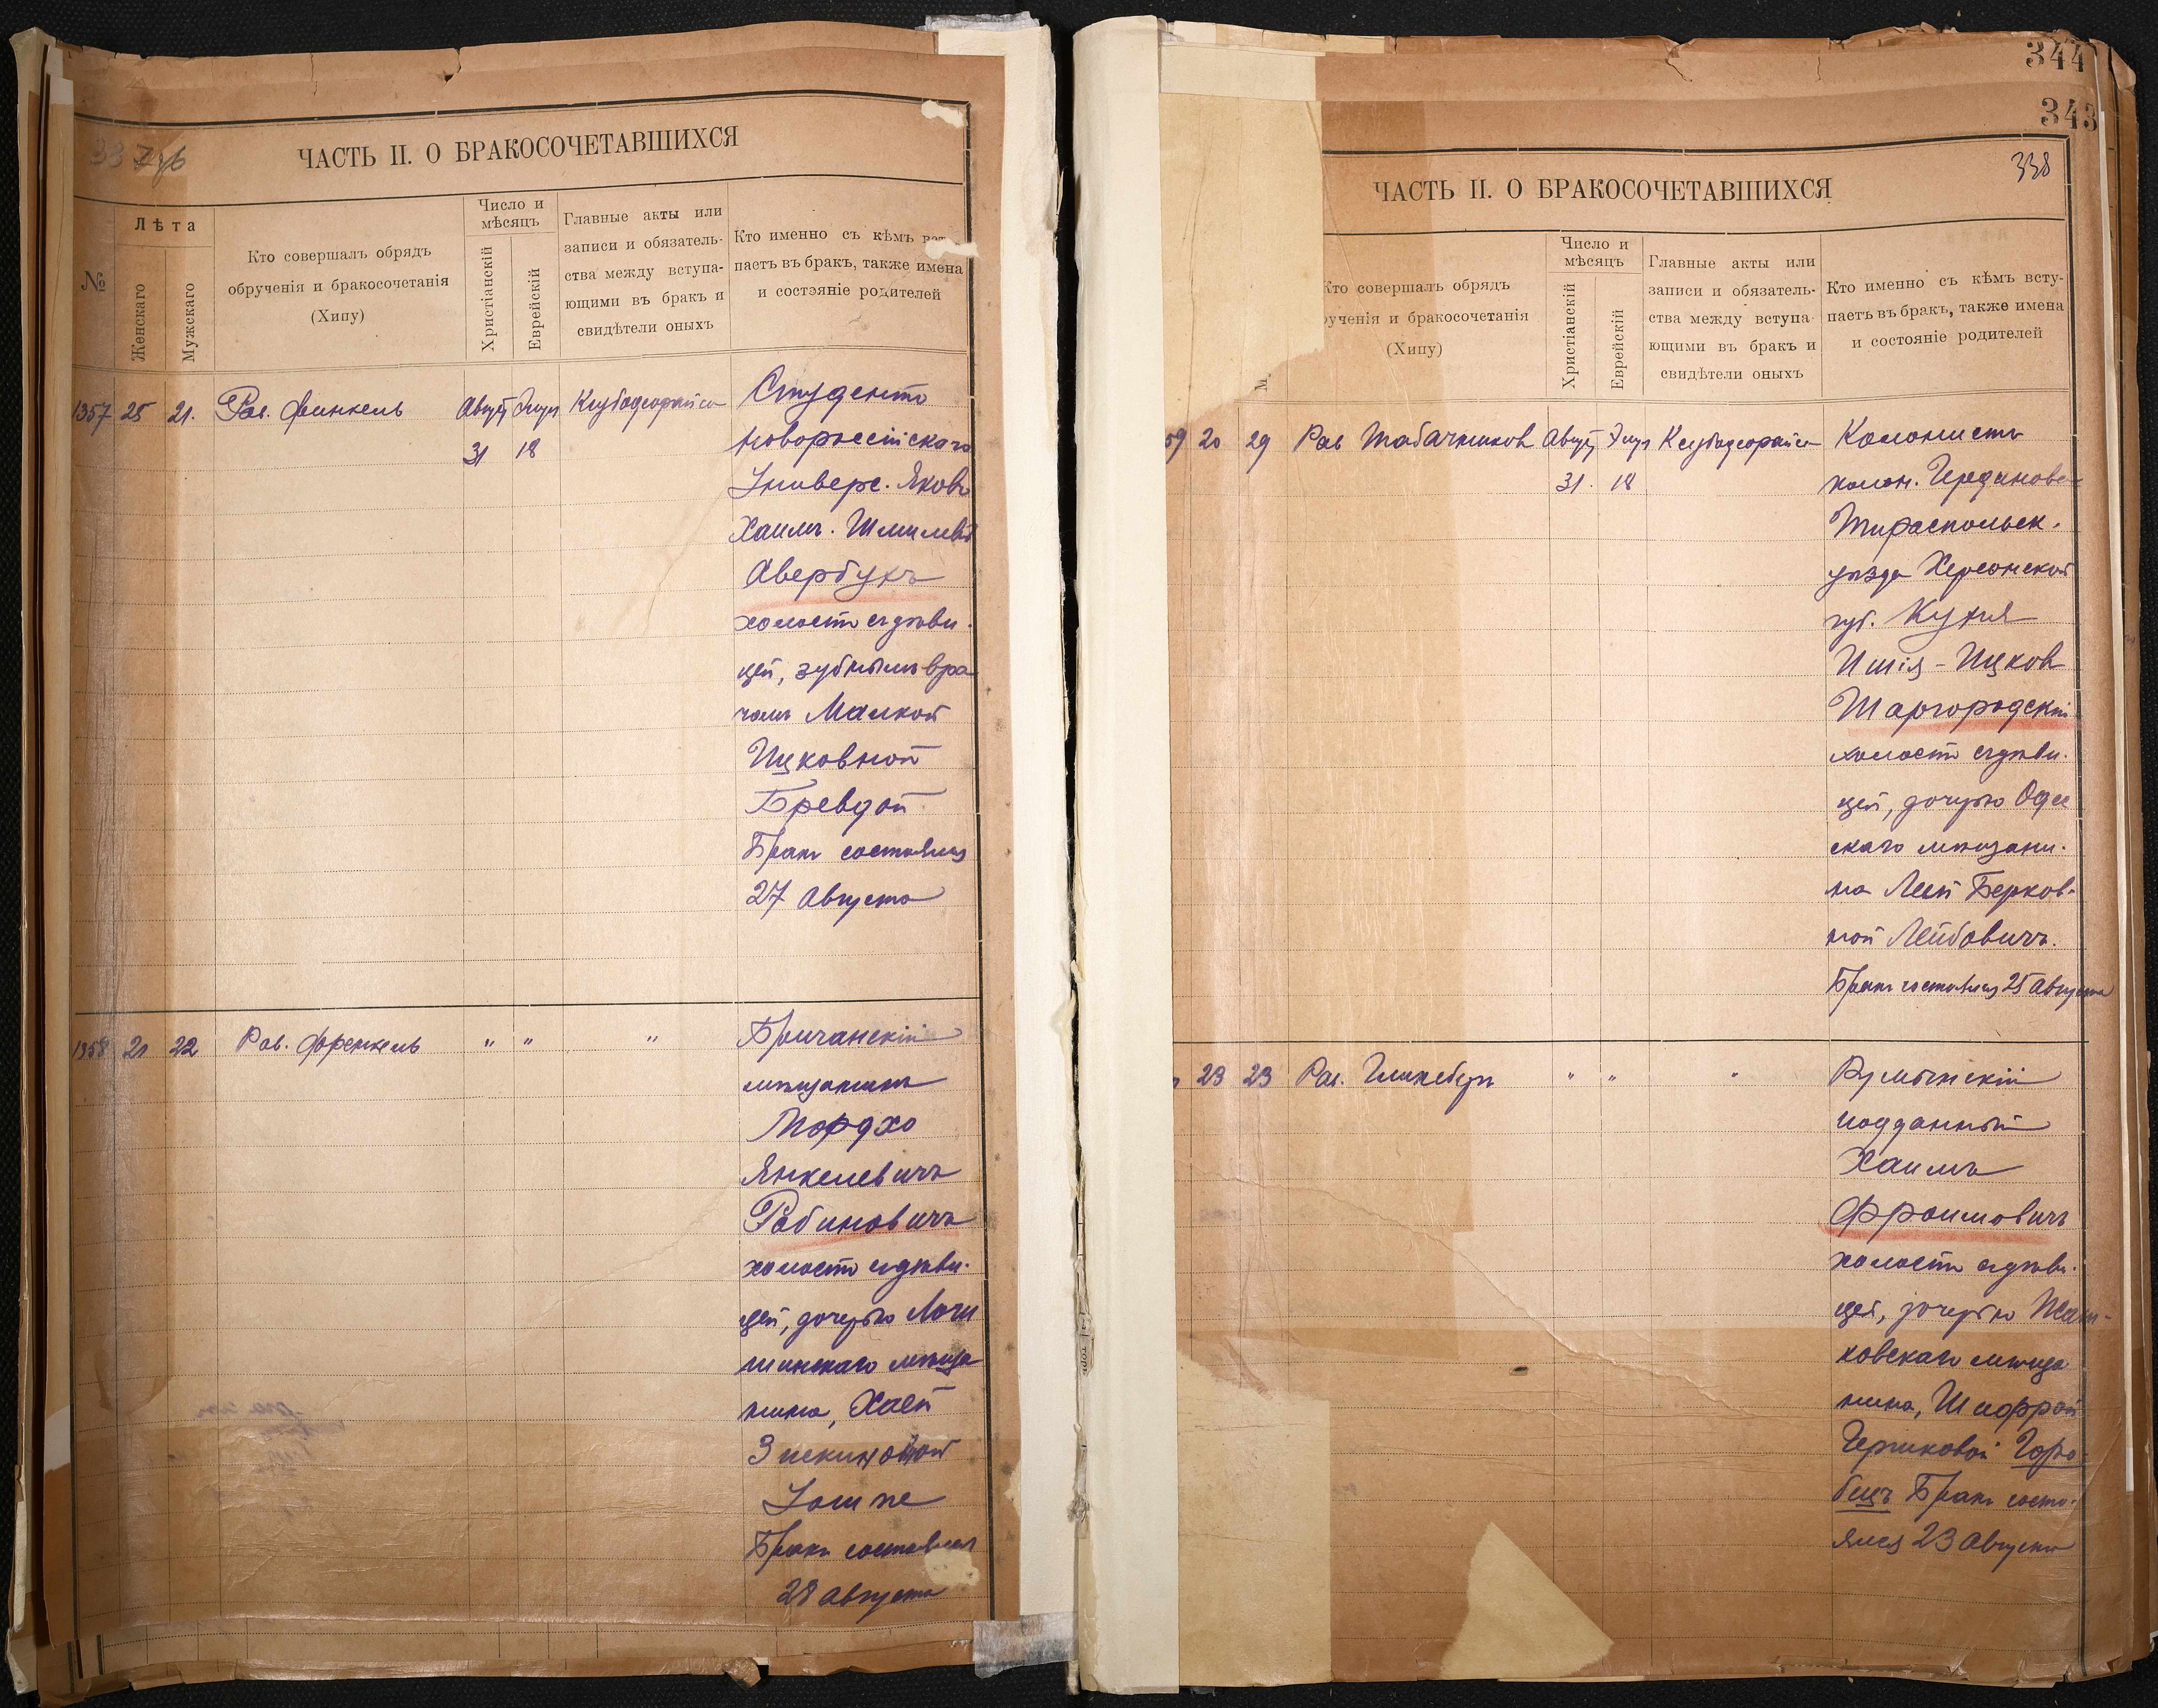 ЧАСТЬ II. О БРАКОСОЧЕТАВШИХСЯ
№
Лѣта
Женскаго
Мужскаго
Кто совершалъ обрядъ
обрученія и бракосочетанія
(Хипу)
Число и
мѣсяцъ
Христіанскій
Еврейскій
Главные акты или
записи и обязатель-
ства между вступа-
ющими въ бракъ и
свидѣтели оныхъ
Кто именно съ кѣмъ вст
паетъ въ бракъ, также имена
и состояніе родителей
1357 25 21. Рав. Финкель
31 18
Студентъ
Новороссійскаго
Универс. Яковъ
Хаимъ. Шмилев
Авербухъ
холостъ съ дѣви.
цей, зубнымъ вра
чомъ Малкой
Ицковной
Бревдой
Бракъ состоялся
27 Августа
1358 21 22 Рав. Френкель " " "
Бричанскій
мѣщанинъ
Мордхо
Янкелевичъ
Рабиновичъ
холостъ съ дѣви.
цей, дочерью Логи
шинскаго мѣща
нина, Хаей
Бракъ состоялся
28 Августа
344
343
338
ЧАСТЬ II. О БРАКОСОЧЕТАВШИХСЯ
М.
Кто совершалъ обрядъ
рученія и бракосочетанія
(Хипу)
Число и
мѣсяцъ
Христіанскій
Еврейскій
Главные акты или
записи и обязатель-
ства между вступа-
ющими въ бракъ и
свидѣтели оныхъ
Кто именно съ кѣмъ всту-
паетъ въ бракъ, также имена
и состояніе родителей
59 20 29 Рав Табачников
31. 18
Колонистъ
колон.
Тираспольск.
уѣзда Херсонской
губ.
Ицков
Шаргородскій
холостъ съ дѣви.
цей, дочерью Одес
скаго мѣщани.
на Леей Берков-
ной Лейбовичъ.
Бракъ состоялся 25 Августа
23 23 Рав. " " "
Румынскій
подданный
Хаимъ
Фроимовичъ
холостъ съ дѣви.
цей, дочерью
ковскаго мѣща
нина, Шифрой
Гершковой Горо-
бецъ Бракъ состо-
ялся 23 Августа